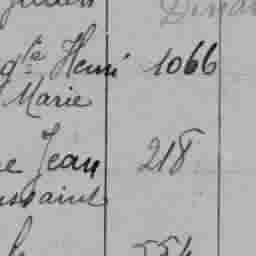 Dinan
gte Henri 1066
Marie
e Jean 218
ussaint
554